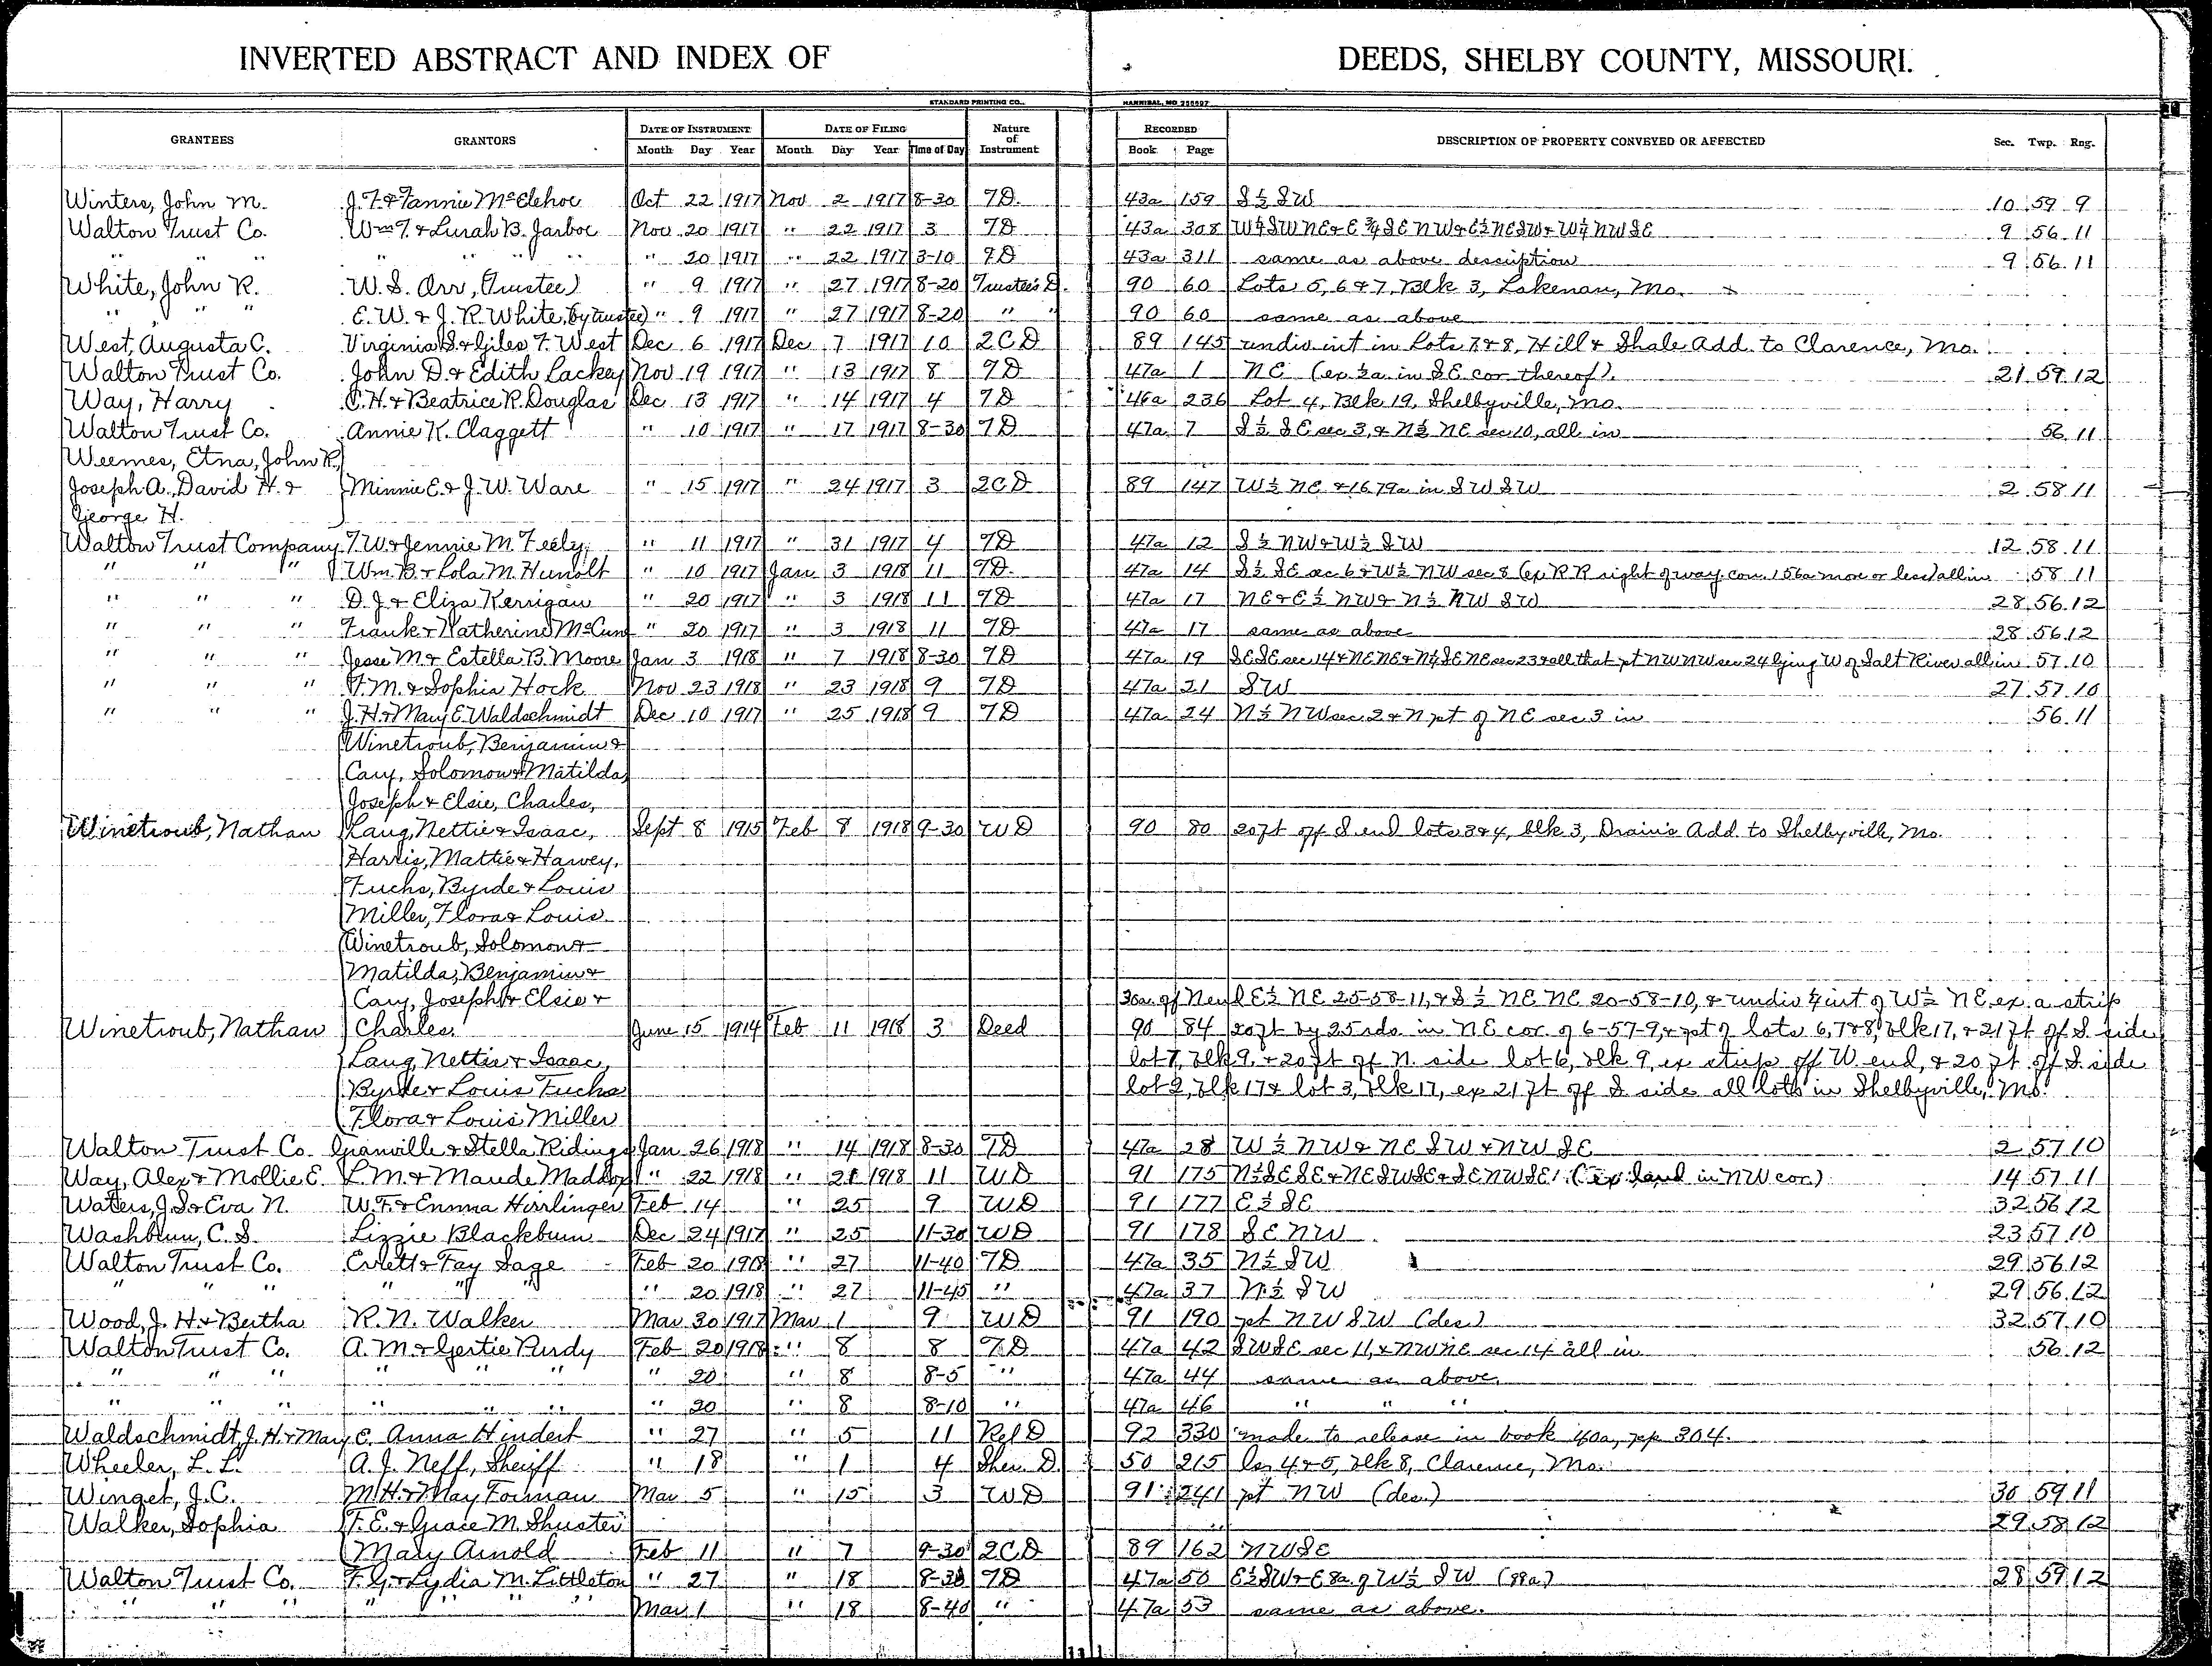 INVERTED ABSTRACT AND INDEX OF DEEDS, SHELBY COUNTY, MISSOURI.
STANDARD PRINTING CO., HANNIBAL, MO
GRANTEES GRANTORS DATE OF INSTRUMENT DATE OF FILING Nature of Instrument RECORDED DESCRIPTION OF PROPERTY CONVEYED OR AFFECTED Sec. Twp. Rng.
Month Day Year Month Day Year Time of Day Book Page
Winters, John M. J. F. & Fannie McElhoe Oct 22 1917 Nov 2 1917 8-30 TD 43a 159 S½ SW 10 59 9
Walton Trust Co. Wm T. & Lurah B. Jarboe Nov 20 1917 " 22 1917 3 TD 43a 308 9 56 11
" " " " " " " " 20 1917 " 22 1917 3-10 TD 43a 311 same as above description 9 56 11
White, John R. W. S. Orr, (Trustee) " 9 1917 " 27 1917 8-20 Trustee's D. 90 60 Lots 5, 6 & 7, Blk 3, Lakenan, Mo.
" " " E. W. & J. R. White, (by trustee) " 9 1917 " 27 1917 8-20 " " 90 60 same as above
West, Augusta C. Virginia S. & Giles F. West Dec 6 1917 Dec 7 1917 10 2CD 89 145 undiv int in Lots 7 & 8, Hill & Shale Add. to Clarence, Mo.
Walton Trust Co. John D. & Edith Lackey Nov 19 1917 " 13 1917 8 TD 47a 1 NE (ex ½a. in SE cor thereof). 21 59 12
Way, Harry C. H. & Beatrice R. Douglas Dec 13 1917 " 14 1917 4 TD 46a 236 Lot 4, Blk 19, Shelbyville, Mo.
Walton Trust Co. Annie K. Claggett " 10 1917 " 17 1917 8-30 TD 47a 7 S½ SE sec 3, & N½ NE sec 10, all in 56 11
Weemes, Etna, John R.,
Joseph A., David H. & Minnie E. & J. W. Ware " 15 1917 " 24 1917 3 2CD 89 147 W½ NE & 16.79a in SW SW 2 58 11
George H.
Walton Trust Company T. W. & Jennie M. Feely " 11 1917 " 31 1917 4 TD 47a 12 S½ NW & W½ SW 12 58 11
" " " Wm. B. & Lola M. Hunolt " 10 1917 Jan 3 1918 11 TD. 47a 14 S½ SE sec 6 & W½ NW sec 8 (ex RR right of way. con. 156a more or less) all in 58 11
" " " D. J. & Eliza Kerrigan " 20 1917 " 3 1918 11 TD 47a 17 NE & E½ NW & N½ NW SW 28 56 12
" " " Frank & Katherine McCune " 20 1917 " 3 1918 11 TD 47a 17 same as above 28 56 12
" " " Jesse M. & Estella B. Moore Jan 3 1918 " 7 1918 8-30 TD 47a 19 SESE sec 14 & NENE & N½ SENE sec 23 & all that pt NWNW sec 24 lying W of Salt River all in 57 10
" " " F. M. & Sophia Hock Nov 23 1918 " 23 1918 9 TD 47a 21 SW 27 57 10
" " " J. H. & Mary E. Waldschmidt Dec 10 1917 " 25 1918 9 TD 47a 24 N½ NW sec 2 & N pt of NE sec 3 in 56 11
Winetroub, Benjamin &
Cary, Solomon & Matilda,
Joseph & Elsie, Charles,
Winetroub, Nathan Laug, Nettie & Isaac, Sept 8 1915 Feb 8 1918 9-30 WD 90 80 20 ft off S end lots 3 & 4, blk 3, Drain's Add to Shelbyville, Mo.
Harris, Mattie & Harvey,
Fuchs, Byrde & Louis
Miller, Flora & Louis
Winetroub, Solomon &
Matilda, Benjamin &
Cary, Joseph & Elsie & 36a. of N end E½ NE 25-58-11, & S½ NE NE 20-58-10, & undiv ¼ int of W½ NE ex. a strip
Winetroub, Nathan Charles. June 15 1914 Feb 11 1918 3 Deed 90 84 20 ft by 25 rds. in NE cor. of 6-57-9, & pt of lots 6, 7 & 8, blk 17, & 21 ft off S. side
Laug, Nettie & Isaac, lot 7, blk 9, & 20 ft off N. side lot 6, blk 9, ex strip off W. end, & 20 ft. off S. side
Byrde & Louis Fuchs lot 2, blk 17 & lot 3, blk 17, ex 21 ft off S side all lots in Shelbyville, Mo.
Flora & Louis Miller
Walton Trust Co. Granville & Stella Ridings Jan 26 1918 " 14 1918 8-30 TD 47a 28 W½ NW & NE SW & NW SE 2 57 10
Way, Alex & Mollie E. L. M. & Maude Maddox " 22 1918 " 21 1918 11 WD 91 175 N½ SE SE & NE SW SE & SE NW SE (ex land in NW cor) 14 57 11
Waters, J. S. & Eva N. W. F. & Emma Hirrlinger Feb 14 " 25 9 WD 91 177 E½ SE 32 56 12
Washburn, C. S. Lizzie Blackburn Dec 24 1917 " 25 11-30 WD 91 178 SE NW 23 57 10
Walton Trust Co. Erlett & Fay Sage Feb 20 1918 " 27 11-40 TD 47a 35 N½ SW 29 56 12
" " " " " " " 20 1918 " 27 11-45 " 47a 37 N½ SW 29 56 12
Wood, J. H. & Bertha R. N. Walker Mar 30 1917 Mar 1 9 WD 91 190 pt NW SW (des) 32 57 10
Walton Trust Co. A. M. & Gertie Purdy Feb 20 1918 " 8 8 TD 47a 42 SWSE sec 11, & NWNE sec 14 all in 56 12
" " " " " " " 20 " 8 8-5 " 47a 44 same as above
" " " " " " " 20 " 8 8-10 " 47a 46 " " "
Waldschmidt, J. H. & Mary E. Anna Hindert " 27 " 5 11 Rel D 92 330 made to release in book 40a, pp 304.
Wheeler, L. L. A. J. Neff, Sheriff " 18 " 1 4 Sher. D. 50 215 los 4 & 5, blk 8, Clarence, Mo.
Winget, J. C. M. H. & May Forman Mar 5 " 15 3 WD 91 241 pt NW (des.) 30 59 11
Walker, Sophia F. E. & Grace M. Shuster 29 58 12
Mary Arnold Feb 11 " 7 9-30 2CD 89 162 NWSE
Walton Trust Co. F. G. & Lydia M. Littleton " 27 " 18 8-30 TD 47a 50 E½ SW & E 8a. of W½ SW (88a) 28 59 12
" " " " " " " Mar 1 " 18 8-40 " 47a 53 same as above.